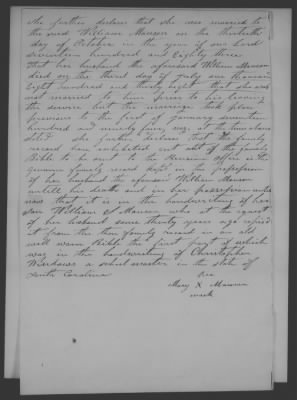 She further declare that she was married to
the said William Mauson on the thirtieth
day of October in the year of our Lord
Seventeen hundred and Eighty three
That her husband the aforesaid William Mauson
died on the third day of July one thousand
Eight hundred and thirty eight that she was
not married to prior to his leaving
the service but the marriage took place
previous to the first of January seventeen
hundred and ninety four, viz, at the time above
stated She further declare that the family
record here exhibited cut out of the family
Bible to be sent to the Pension office is the
genuine family record kept in the possession
of her husband the aforesaid William Mauson
untill his death and in her possession untill
now that it is in the handwriting of her
Son William Mauson who at the request
of her husband some thirty years ago copied
it from the then family record in an old
well worn Bible the first part of which
was in the handwriting of Christopher
a school master in the state of
South Carolina her
Mary X Mauson
mark